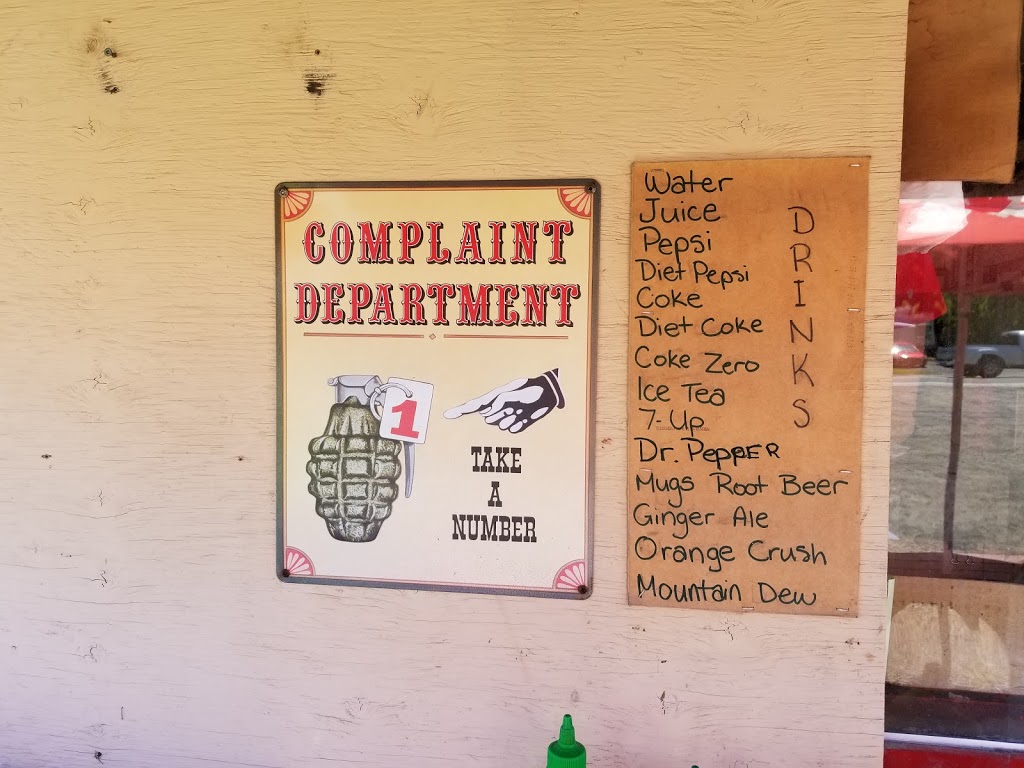 COMPLAINT
DEPARTMENT
1
TAKE
A
NUMBER
Water
Juice
Pepsi
Diet Pepsi
Coke
Diet Coke
Coke Zero
Ice Tea
7-Up
Dr. PePPER
Mugs Root Beer
Ginger Ale
Orange Crush
Mountain Dew
DRINKS